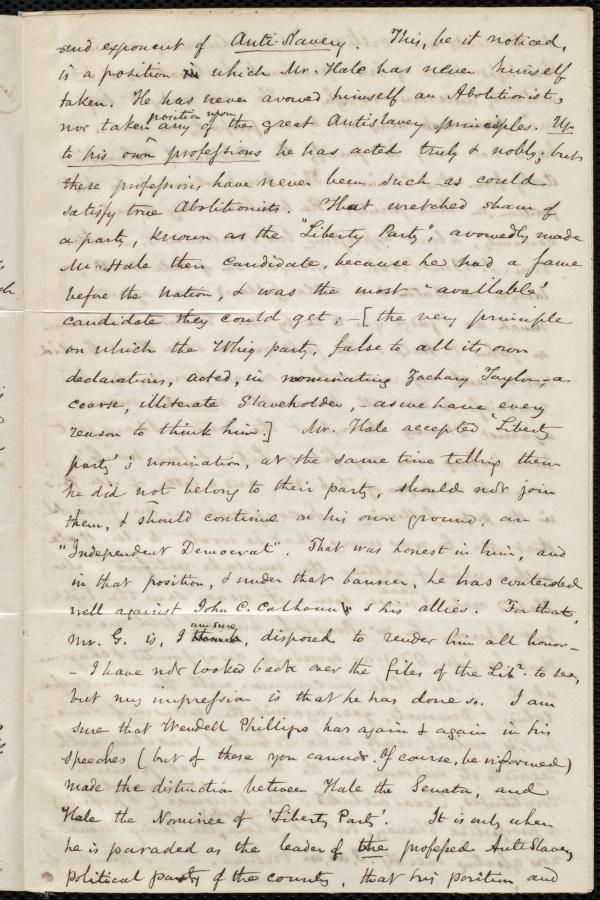 and exponent of Anti-Slavery. This, be it noticed,
is a position in which Mr. Hale has never himself
taken. He has never avowed himself an Abolitionist,
position upon
nor taken any of the great Antislavery principles. Up
to his own professions he has acted truly & nobly; but
these professions have never been such as could
satisfy true Abolitionists. That wretched sham of
a party, known as the "Liberty Party", avowedly made
Mr. Hale their candidate, because he had a fame
before the nation, & was the most "available"
candidate they could get; - [the very principle
on which the Whig party, false to all its own
declarations, acted, in nominating Zachary Taylor - a
coarse, illiterate Slaveholder, - as we have every
reason to think him.] Mr. Hale accepted 'Liberty
party's nomination, at the same time telling them
he did not belong to their party, should not join
them, & should continue on his own ground, an
"Independent Democrat". That was honest in him, and
in that position, & under that banner, he has contended
well against John C. Calhoun & his allies. For that,
am sure
Mr. G. is, I think, disposed to render him all honor -
- I have not looked back over the files of the Libr. to see,
but my impression is that he has done so. I am
sure that Wendell Phillips has again & again in his
speeches (but of these you cannot, of course, be informed)
made the distinction between Hale the Senator, and
Hale the Nominee of 'Liberty Party'. It is only when
he is paraded as the leader of the professed AntiSlavery
political party of the country, that his position and